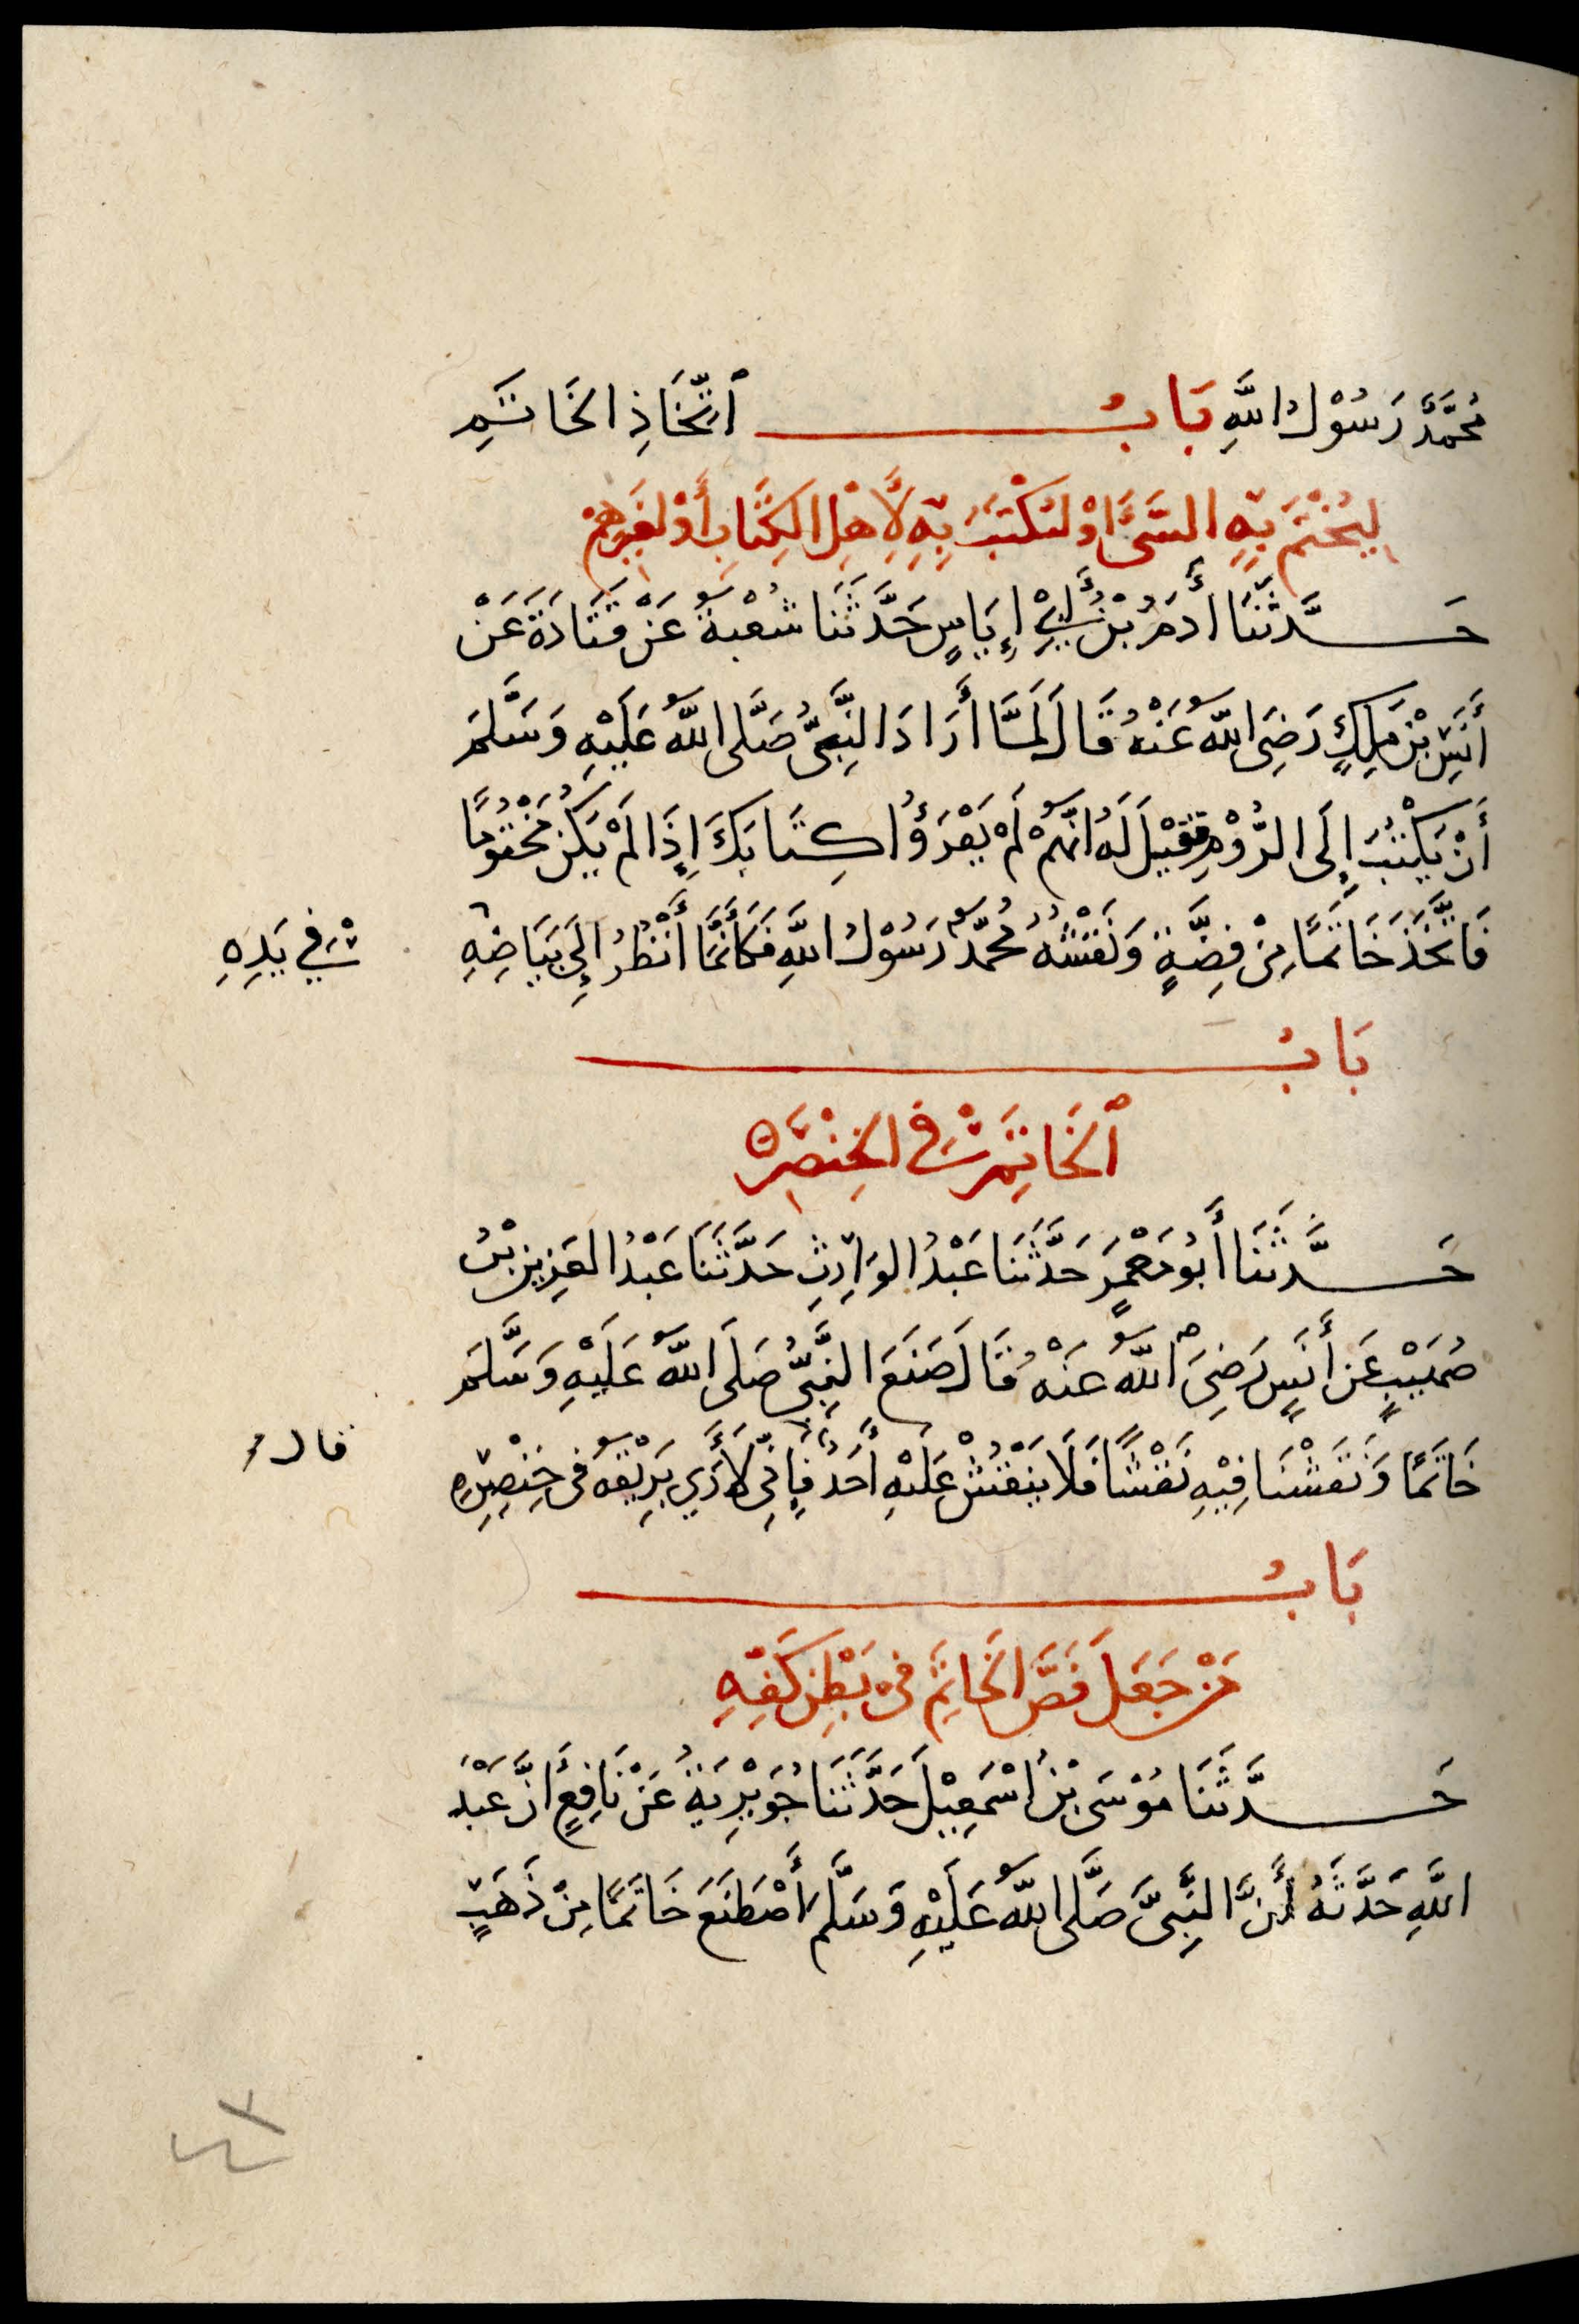 مُحَمَّدٌ رَسُوْلُ اللَّهِ بَابُ ٱتِّخَاذِ الخَاتَمِ
لِيُخْتَمَ بِهِ الشَّئُ اَوْ لِيُكْتَبَ بِهِ لِأَهْلِ الكِتَابِ أَوْ لِغَيْرِهِمْ
حَدَّثَنَا أٰدَمُ بْنُ أَبِيْ إِيَاسٍ حَدَّثَنَا شُعْبَةُ عَنْ قَتَادَةَ عَنْ
أَنَسِ بْنِ مٰلِكٍ رَضِيَ اللّٰهُ عَنْهُ قَالَ لَمَّا أَرَادَ النَّبِيُّ صَلَّى اللّٰهُ عَلَيْهِ وَسَلَّمَ
أَنْ يَكْتُبَ إِلَى الرُّوْمِ فَقِيْلَ لَهُ انَّهُمْ لَمْ يَقْرَؤُا كِتَابَكَ إِذَا لَمْ يَكُنْ مَخْتُوْمًا
فَاتَّخَذَ خَاتَمًا مِنْ فِضَّةٍ وَنَقْشُهُ مُحَمَّدٌ رَسُوْلُ اللَّهِ فَكَأَنَّمَا أَنْظُرُ إِلَى بَيَاضِهِ
فِي يَدِهِ
بَابُ
ٱلخَاتِمِ فِي الخِنْصَرِ
حَدَّثَنَا أَبُو مَعْمَرٍ حَدَّثَنَا عَبْدُ الوَارِثِ حَدَّثَنَا عَبْدُ العَزِيزِ بْنُ
صُهَيْبٍ عَن أَنَسٍ رَضِيَ اللّٰهُ عَنْهُ قَالَ صَنَعَ النَّبِيُّ صَلَى اللّٰهُ عَلَيْهِ وَسَلَّمَ
خَاتَمًا وَنَقَشْنَا فِيْهِ نَقْشًا فَلَا يَنْقُشْ عَلَيْهِ أَحَدٌ فَإِنِّي لَأَرَي بَرِيْقَهُ فِى خِنْصِرِهِ
قال
بَابُ
مَنْ جَعَلَ فَصَّ الخَاتِمَ فِي بَطْنِ كَفِّهِ
حَدَّثَنَا مُوْسَى بْنُ اسْمٰعِيْلَ حَدَّثَنَا جُوَيْرِيَةُ عَنْ نَافِعٍ أَنَّ عَبْدَ
اللَّهِ حَدَّثَهُ أَنَّ النَّبِيَّ صَلَّى اللّٰهُ عَلَيْهِ وَسَلَّمَ أصْطَنَعَ خَاتَمًا مِنْ ذَهَبٍ